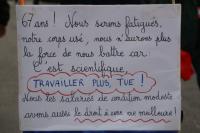 67 ans ! Nous serons fatigués,
notre corps usé, nous n'aurons plus
la force de nous battre car
C'est scientifique
TRAVAILLER PLUS, TUE !
Nous les salariés de condition modeste
avons aussi le droit à une vie meilleure !